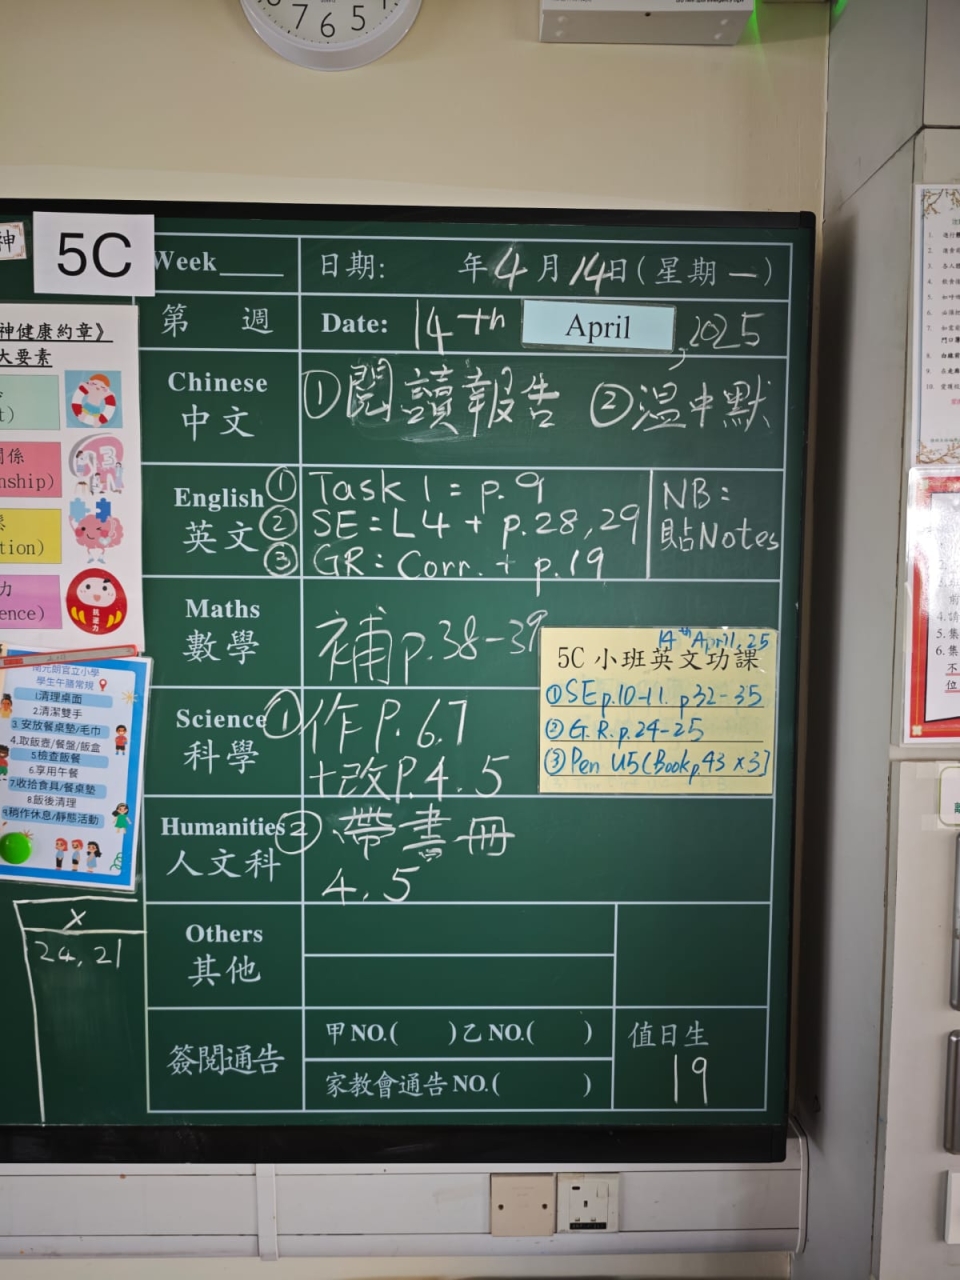 7 6 5
神
5C
Week
日期: 年4月14日(星期一)
第 週
Date: 14th April, 2025
神健康約章》
大要素
Chinese
中文
①閱讀報告 ②溫中默
係
nship)
tion)
力
ence)
English
英文
① Task 1 = p.9
② SE = L4 + p.28, 29
③ GR: Corr. + p.19
NB:
貼Notes
Maths
數學
補p.38-39
14th April, 25
5C 小班英文功課
①SE p.10-11. p32-35
②G.R. p.24-25
③Pen U5(Book p.43 x3)
Science
科學
①作P.6.7
+改P.4.5
Humanities
人文科
②帶書冊
4.5
學生午膳常規
1.清理桌面
2.清潔雙手
3.安放餐桌墊/毛巾
4.取飯壺/餐盤/飯盒
5.檢查飯餐
6.享用午餐
7.收拾食具/餐桌墊
8.飯後清理
9.稍作休息/靜態活動
X
24, 21
Others
其他
簽閱通告
甲NO.( )乙NO.( )
家教會通告NO.( )
值日生
19